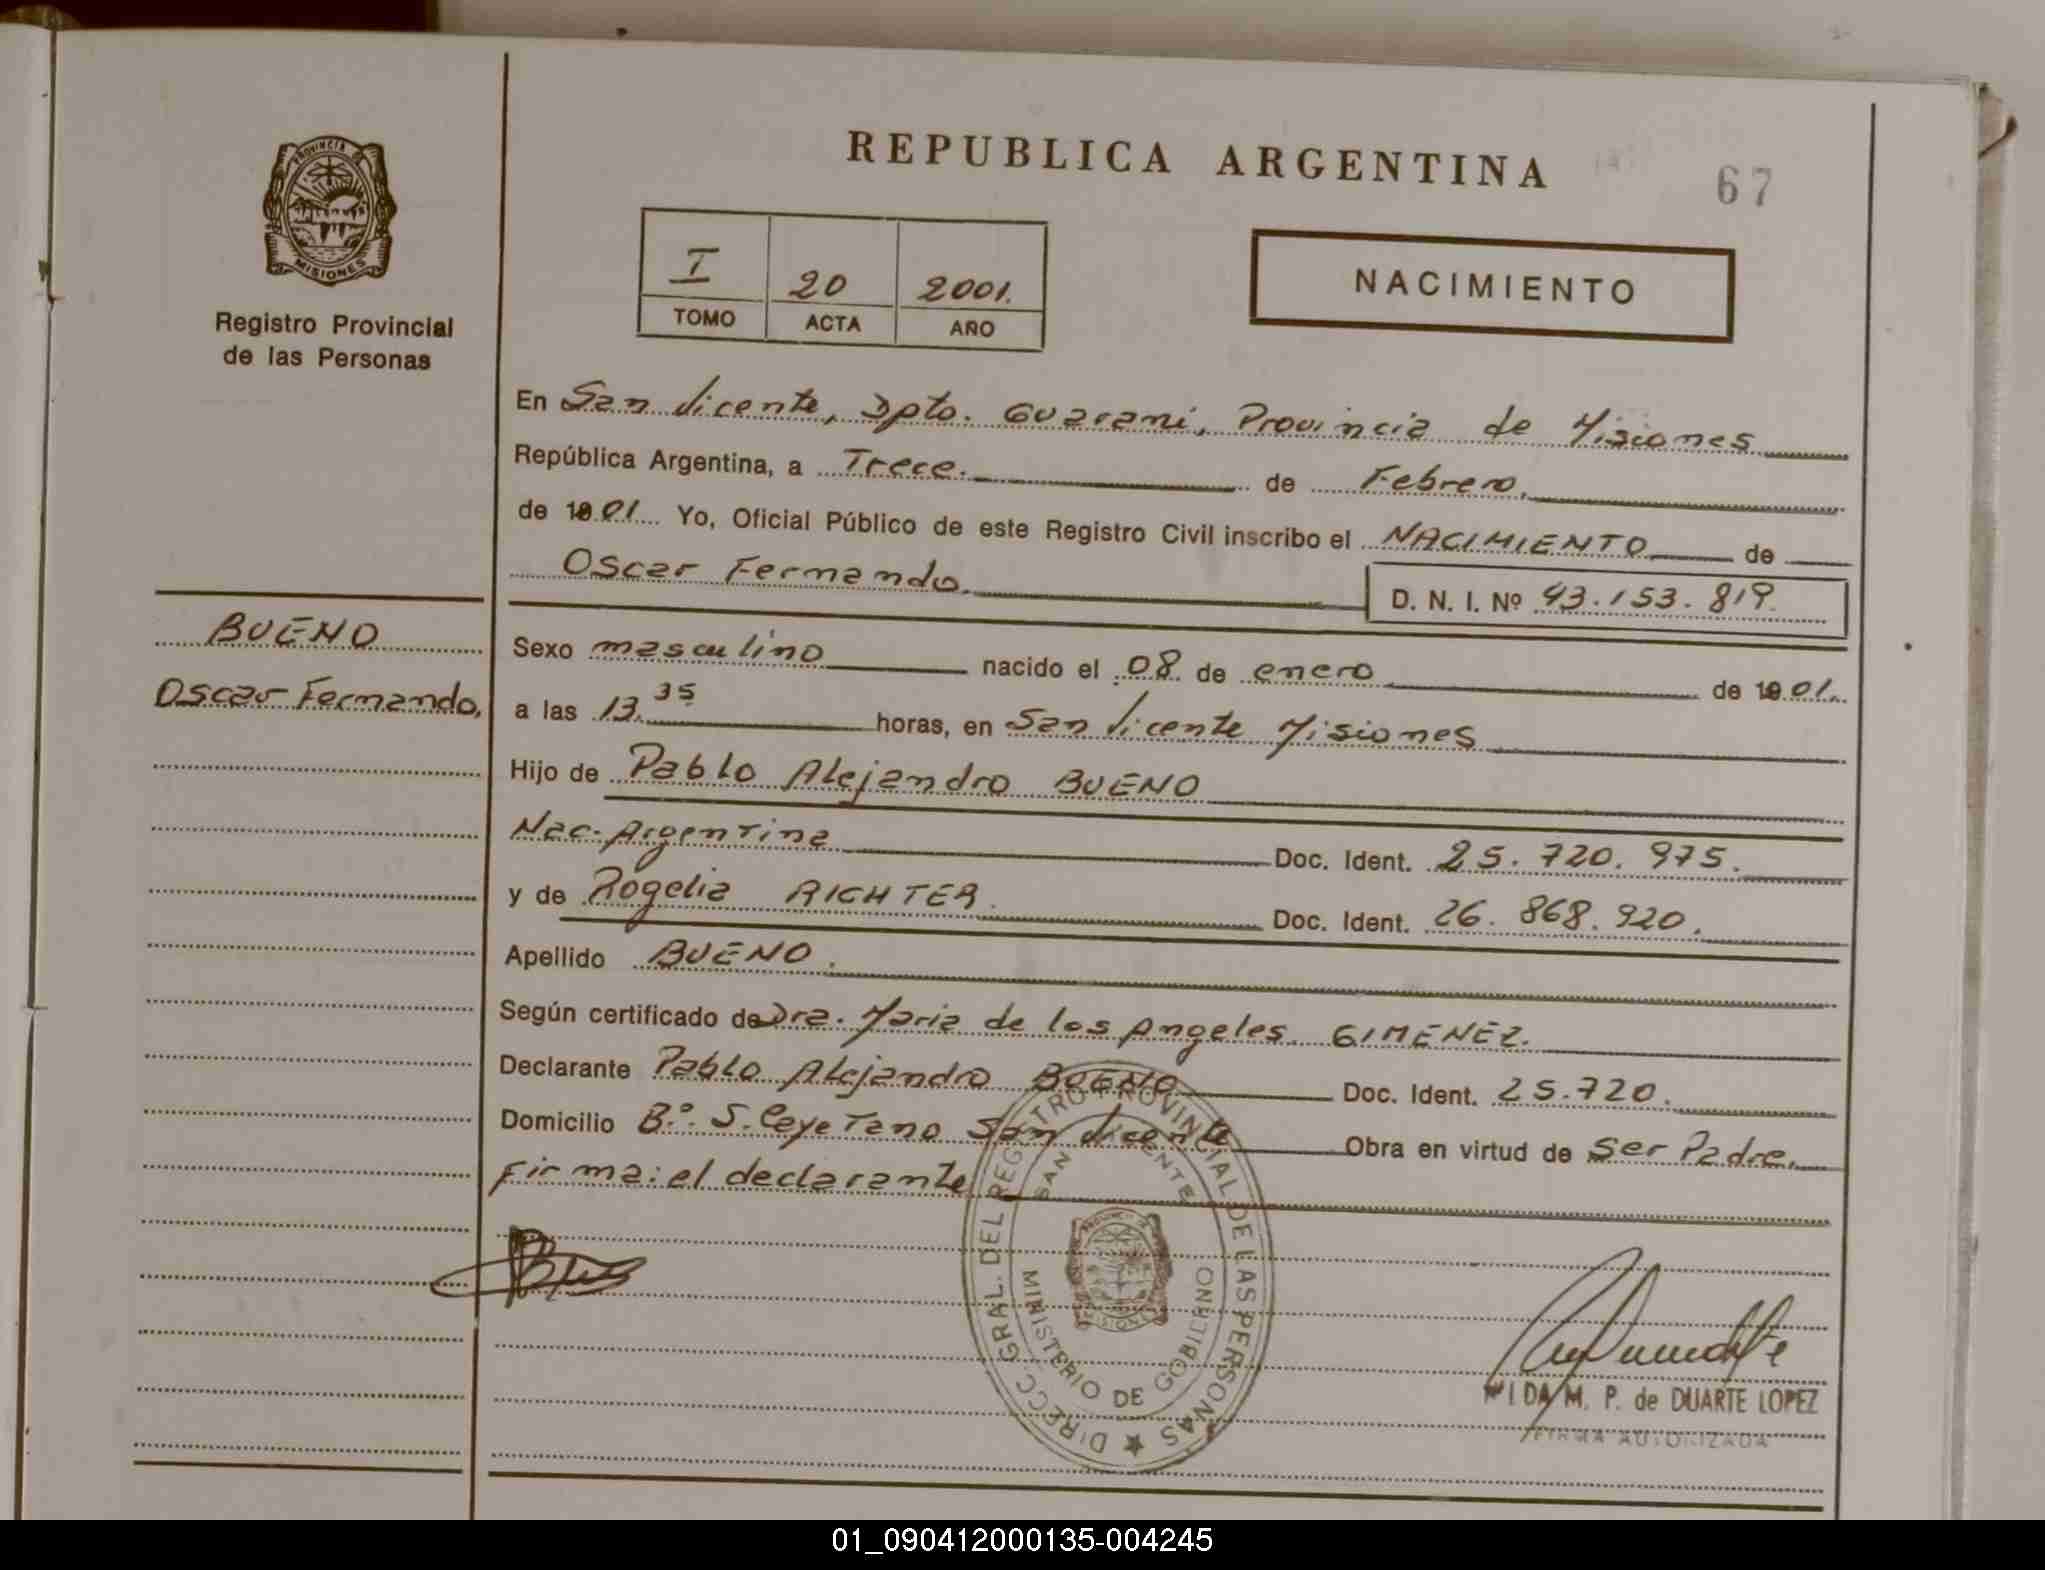 REPUBLICA ARGENTINA
67
PROVINCIA DE
MISIONES
Registro Provincial
de las Personas
I 20 2001.
TOMO ACTA AÑO
NACIMIENTO
En San Vicente, Dpto. Guarani, Provincia de Misiones
República Argentina, a Trece. de Febrero.
de 1901. Yo, Oficial Público de este Registro Civil inscribo el NACIMIENTO de
Oscar Fernando.
D. N. I. Nº 43.153.819.
BUENO
Oscar Fernando.
Sexo masculino nacido el 08 de enero de 1901.
a las 13.35 horas, en San Vicente Misiones
Hijo de Pablo Alejandro BUENO
Nac. Argentina Doc. Ident. 25.720.975.
y de Rogelia RICHTER. Doc. Ident. 26.868.920.
Apellido BUENO.
Según certificado de Dra. Maria de los Angeles GIMENEZ.
Declarante Pablo Alejandro BUENO Doc. Ident. 25.720.
Domicilio Bº. S. Cayetano San Vicente Obra en virtud de Ser Padre.
Firma: el declarante
DIRECC. GRAL. DEL REGISTRO PROVINCIAL DE LAS PERSONAS
SAN VICENTE
MINISTERIO DE GOBIERNO
M. P. de DUARTE LOPEZ
FIRMA AUTORIZADA
01_090412000135-004245